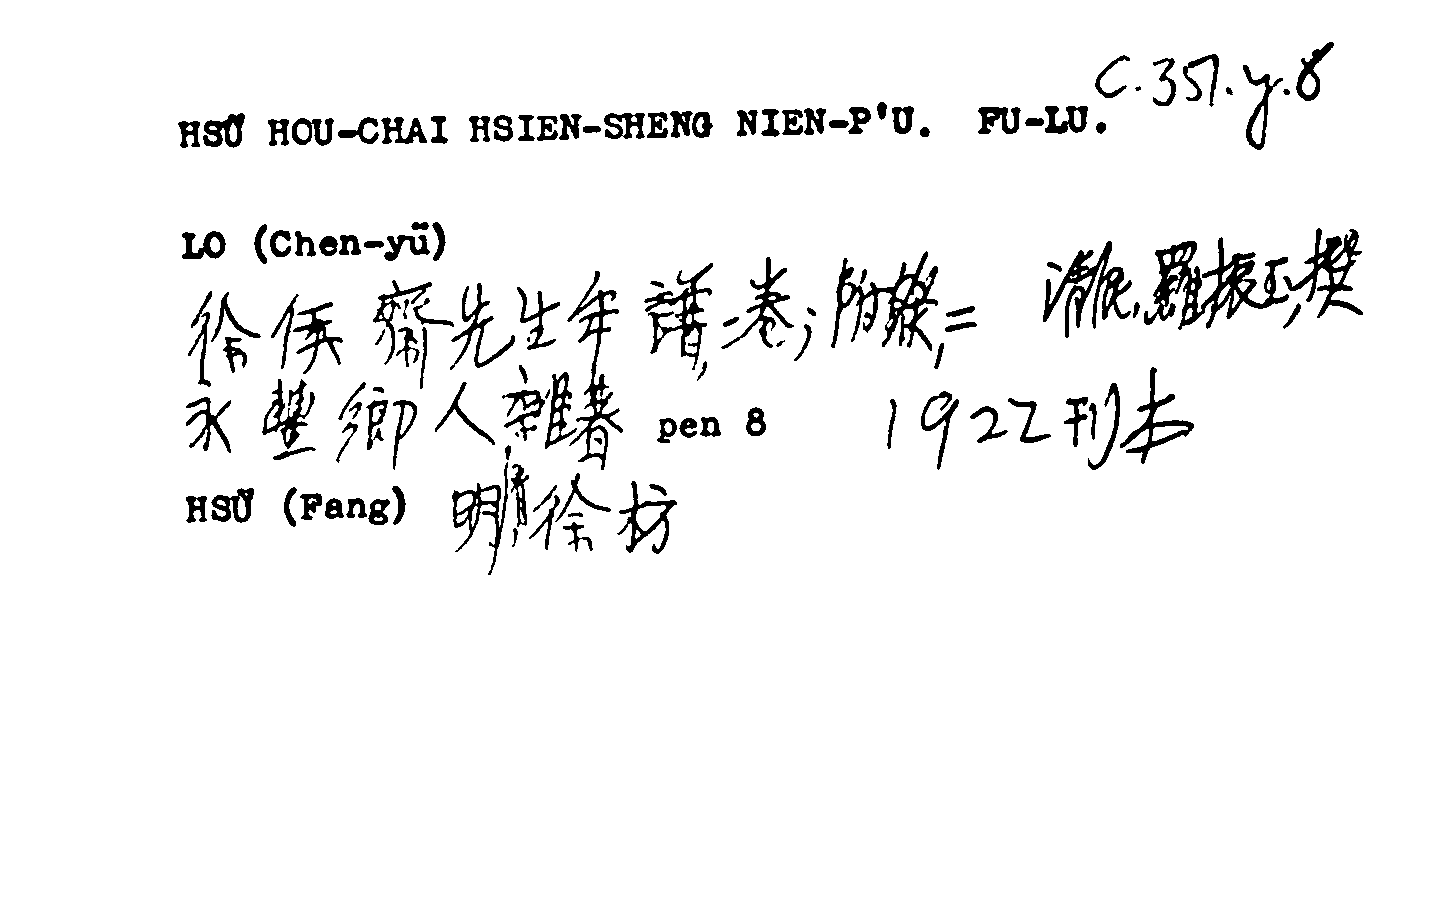 C.351.y.8
HSÜ HOU-CHAI HSIEN-SHENG NIEN-P'U. FU-LU.
LO (Chen-yü)
徐俟齋先生年譜,一卷;附錄,二 清民,羅振玉,撰
永豐鄉人雜著 pen 8 1922刊本
HSÜ (Fang) 明清,徐枋